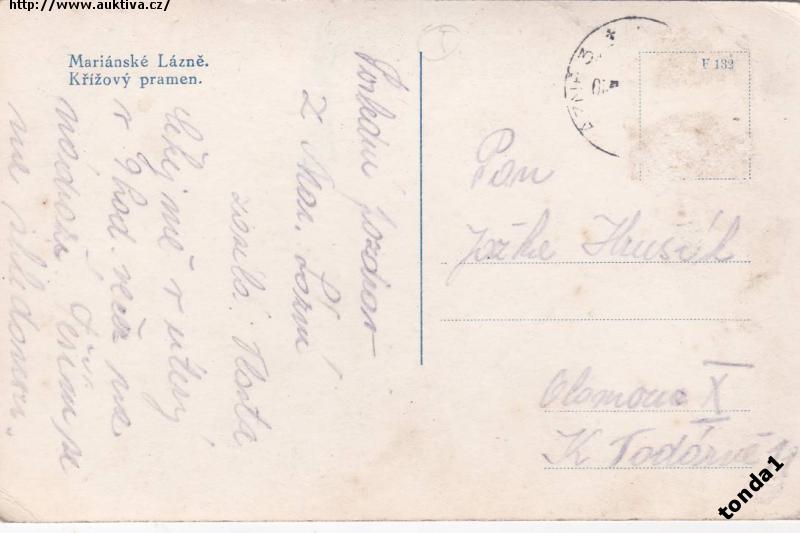 http://www.auktiva.cz/
Mariánské Lázně.
Křížový pramen.
F 132
Poslední pozdrav
z Mar. Lázní
zasílá Vlasta
Čekej mě v úterý
v 9 hod. več. na
nádraží. Těším se
na shledanou.
Pan
Jožka Hrušák
Olomouc X
K
tonda1